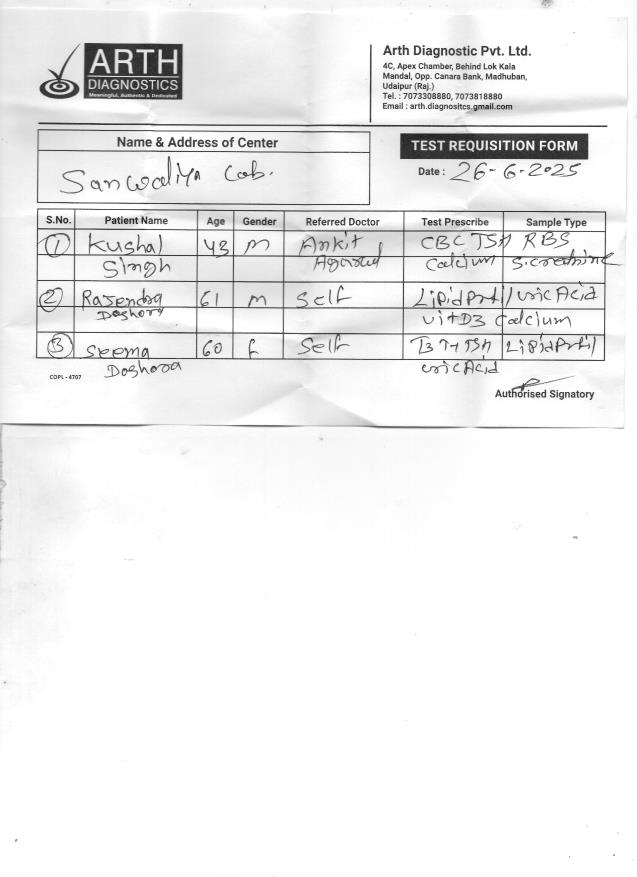 ARTH
DIAGNOSTICS
Meaningful, Authentic & Dedicated
Arth Diagnostic Pvt. Ltd.
4C, Apex Chamber, Behind Lok Kala
Mandal, Opp. Canara Bank, Madhuban,
Udaipur (Raj.)
Tel. : 7073308880, 7073818880
Email : arth.diagnositcs.gmail.com
Name & Address of Center
Sanwaliya Lab.
TEST REQUISITION FORM
Date : 26-6-2025
S.No. Patient Name Age Gender Referred Doctor Test Prescribe Sample Type
1 Kushal 43 M Ankit CBC TSH RBS
Singh Agarwal Calcium S.creatinine
2 Rajendra 61 M Self Lipid Profil/uric Acid
Doshora vitD3 Calcium
3 Seema 60 F Self T3 T4 TSH Lipid Profil
Doshora uric Acid
COPL - 4707
Authorised Signatory